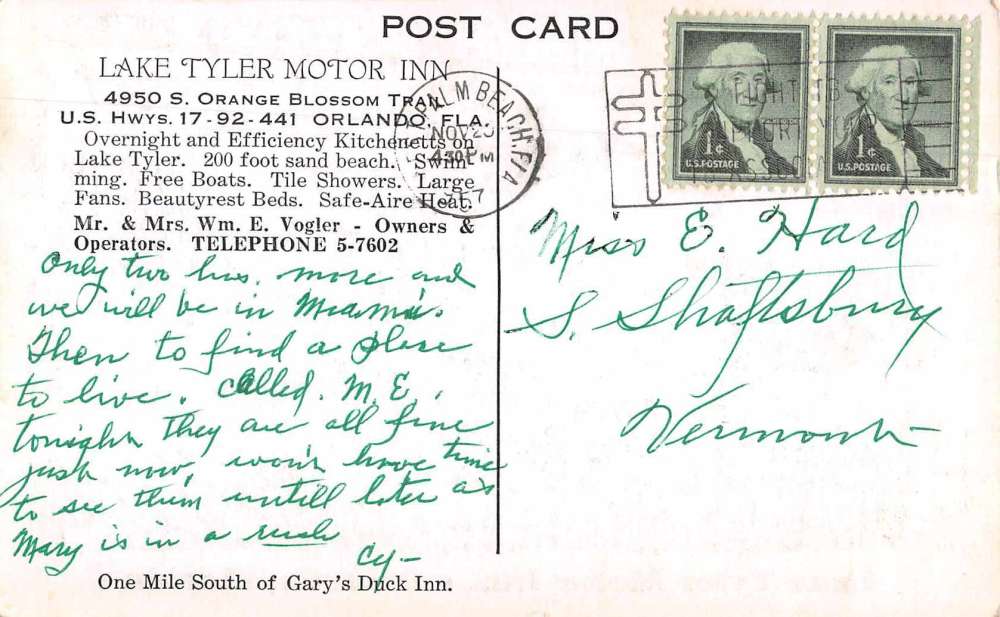 POST CARD
LAKE TYLER MOTOR INN
4950 S. ORANGE BLOSSOM TRAIL
U.S. HWYS. 17-92-441 ORLANDO, FLA.
Overnight and Efficiency Kitchenetts on
Lake Tyler. 200 foot sand beach. Swim-
ming. Free Boats. Tile Showers. Large
Fans. Beautyrest Beds. Safe-Aire Heat.
Mr. & Mrs. Wm. E. Vogler - Owners &
Operators. TELEPHONE 5-7602
PALM BEACH, FLA
NOV 20
430 PM
1957
FIGHT
1¢ 1¢
U.S. POSTAGE U.S. POSTAGE
Only two hrs. more and
we will be in Miami.
Then to find a place
to live. Called. M.E.
tonight they are all fine
just now, won't have time
to see them untill later as
Mary is in a rush
Cy-
Miss E. Hard
S. Shaftsbury
Vermont
One Mile South of Gary's Duck Inn.